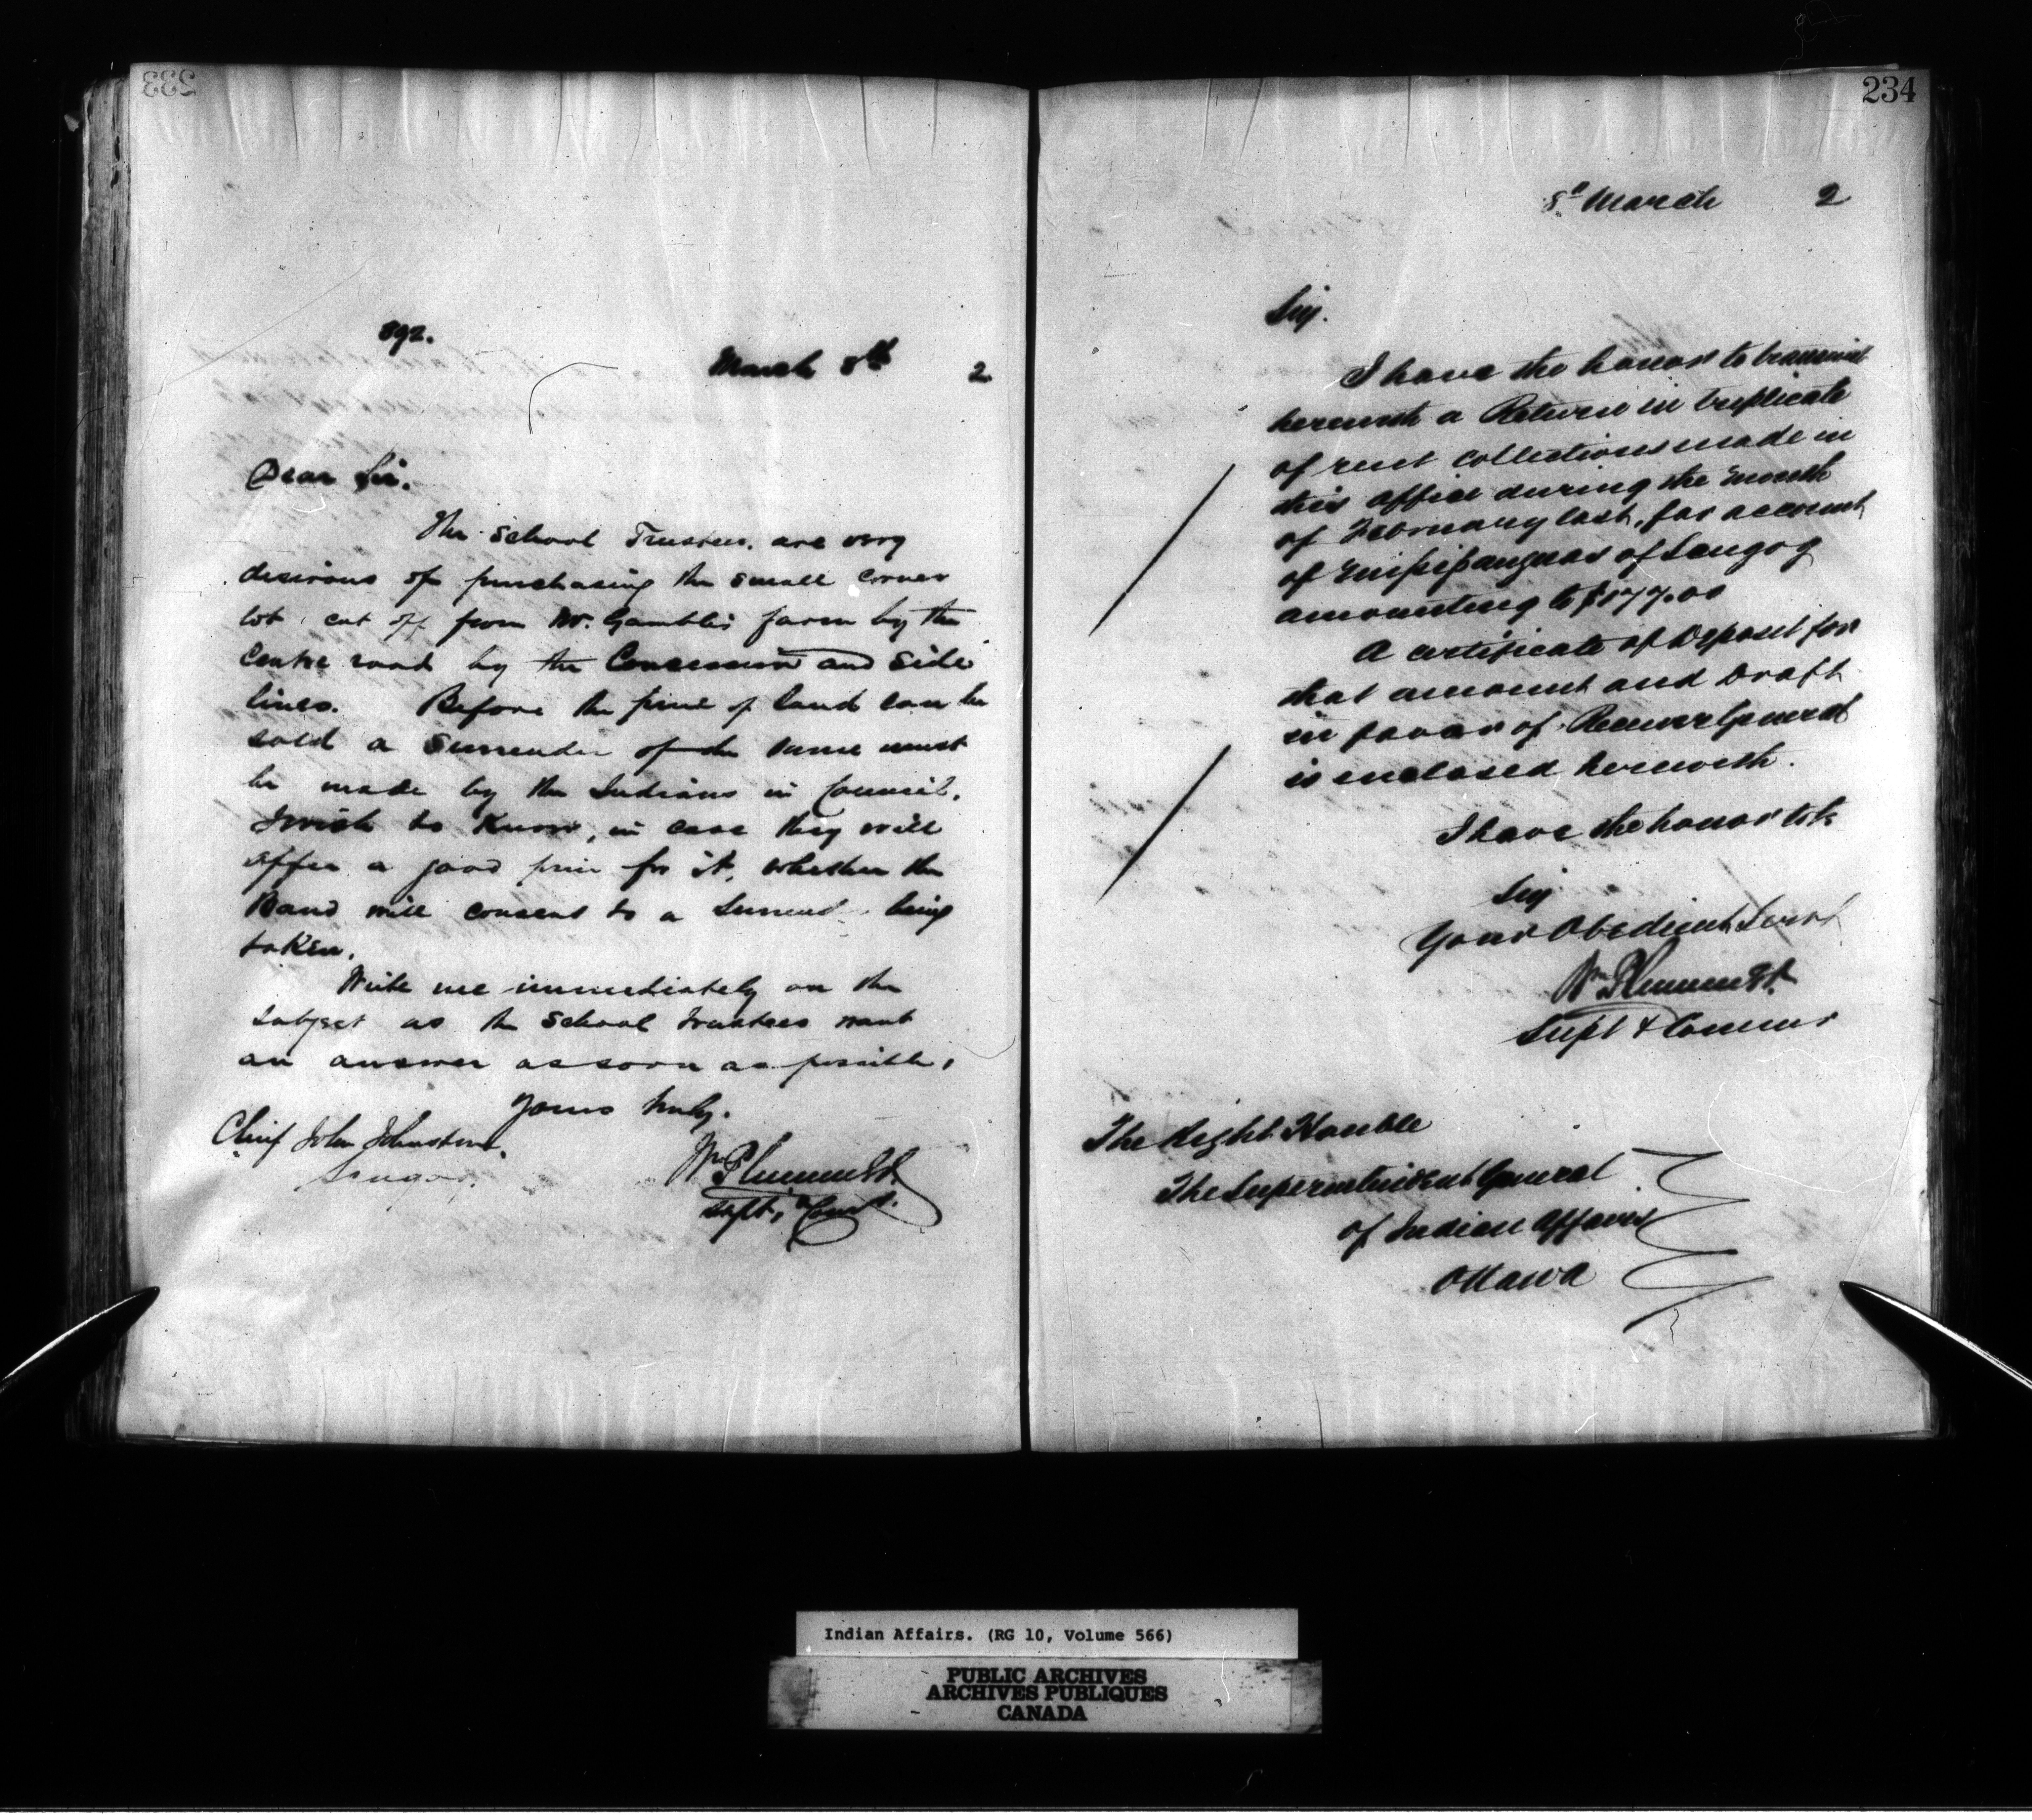 233
892.
March 8th 2
Dear Sir.
The School Trustees, are very
desirous of purchasing the small corner
lot, cut off from Mr. Gambles farm by the
Centre road by the Concession and side
lines. Before the piece of land can be
sold a Surrender of the same must
be made by the Indians in Council.
I wish to know, in case they will
offer a good price for it, whether the
Band will consent to a Surrend. being
taken.
Write me immediately on the
subject as the School trustees want
an answer as soon as possible,
Yours truly.
Chief John Johnstone.
Scugog.
Wm Plummer
Supt,
234
8th March 2
Sir.
I have the honor to transmit
herewith a Return in triplicate
of rent collections made in
this office during the month
of February last, for account
of Mississaguas of Scugog
amounting to $177.00
A certificate of Deposit for
that amount and Draft
in favor of Receiver General
is enclosed herewith.
I have the honor to be
Sir
Your Obedient Servt
Wm Plummer
Supt & Commr
The Right Honble
The Superintendent General
of Indian Affairs
Ottawa
Indian Affairs. (RG 10, Volume 566)
PUBLIC ARCHIVES
ARCHIVES PUBLIQUES
CANADA